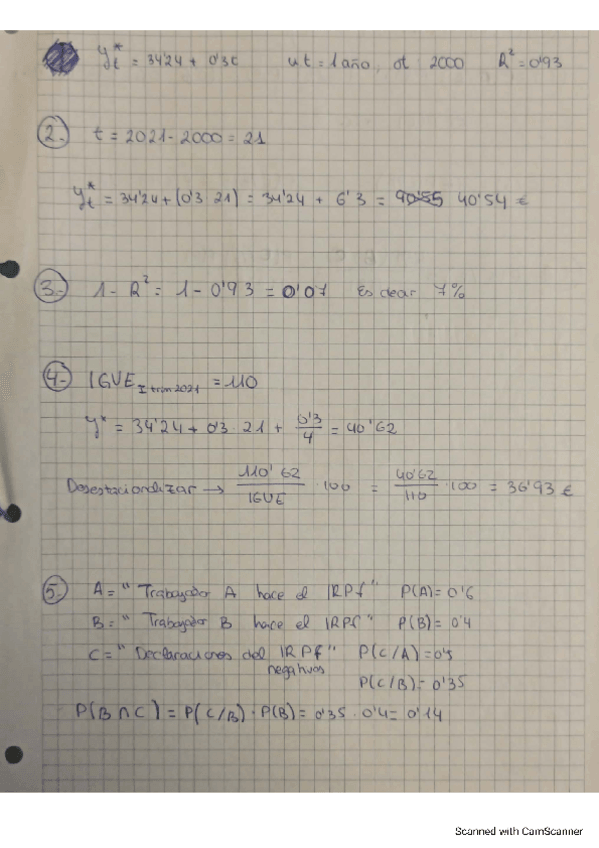 y*t = 34'24 + 0'3t ut = 1 año, ot 2000 R² = 0'93
2. t = 2021 - 2000 = 21
y*t = 34'24 + (0'3 21) = 34'24 + 6'3 = 40'54 €
3. 1 - R² = 1 - 0'93 = 0'07 Es decir 7%
4. IGVE I trim 2021 = 110
y* = 34'24 + 0'3 · 21 + 0'3/4 = 40'62
Desestacionalizar → 110'62/IGVE · 100 = 40'62/110 · 100 = 36'93 €
5. A = "Trabajador A hace el IRPf" P(A) = 0'6
B = "Trabajador B hace el IRPf" P(B) = 0'4
C = "Declaraciones del IRPf" P(C/A) = 0'5
negativos
P(C/B) = 0'35
P(B ∩ C) = P(C/B) · P(B) = 0'35 · 0'4 = 0'14
Scanned with CamScanner